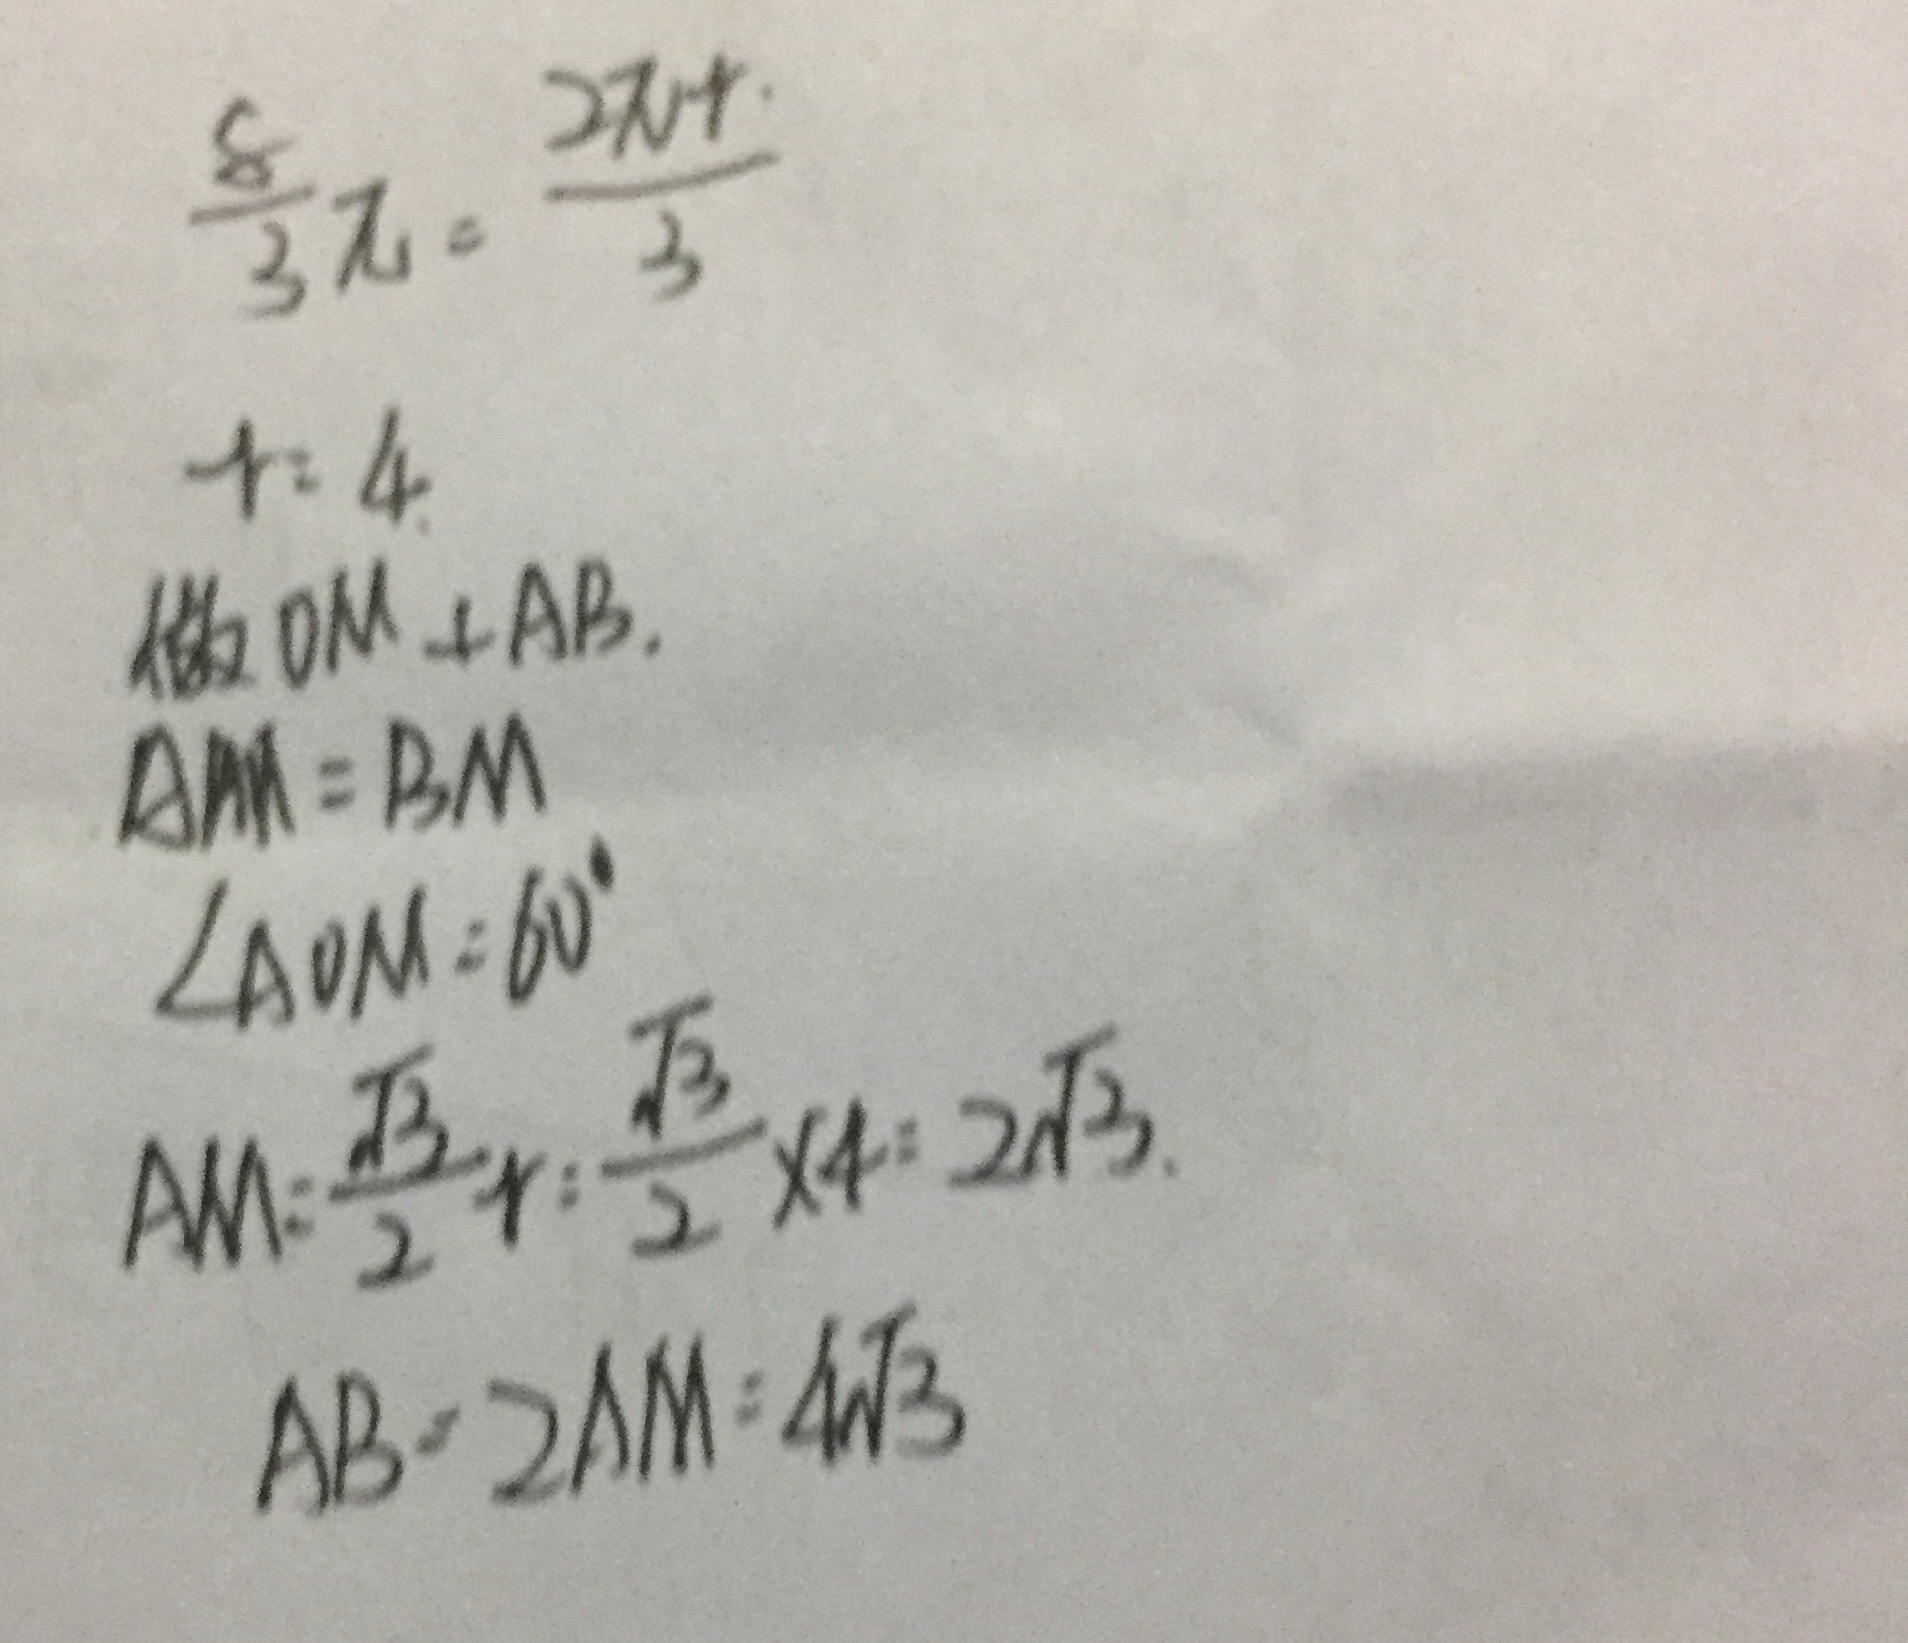 8/3 π = 2πr/3
r = 4.
做OM⊥AB.
AM = BM
∠AOM = 60°
AM = √3/2 r = √3/2 × 4 = 2√3.
AB = 2AM = 4√3